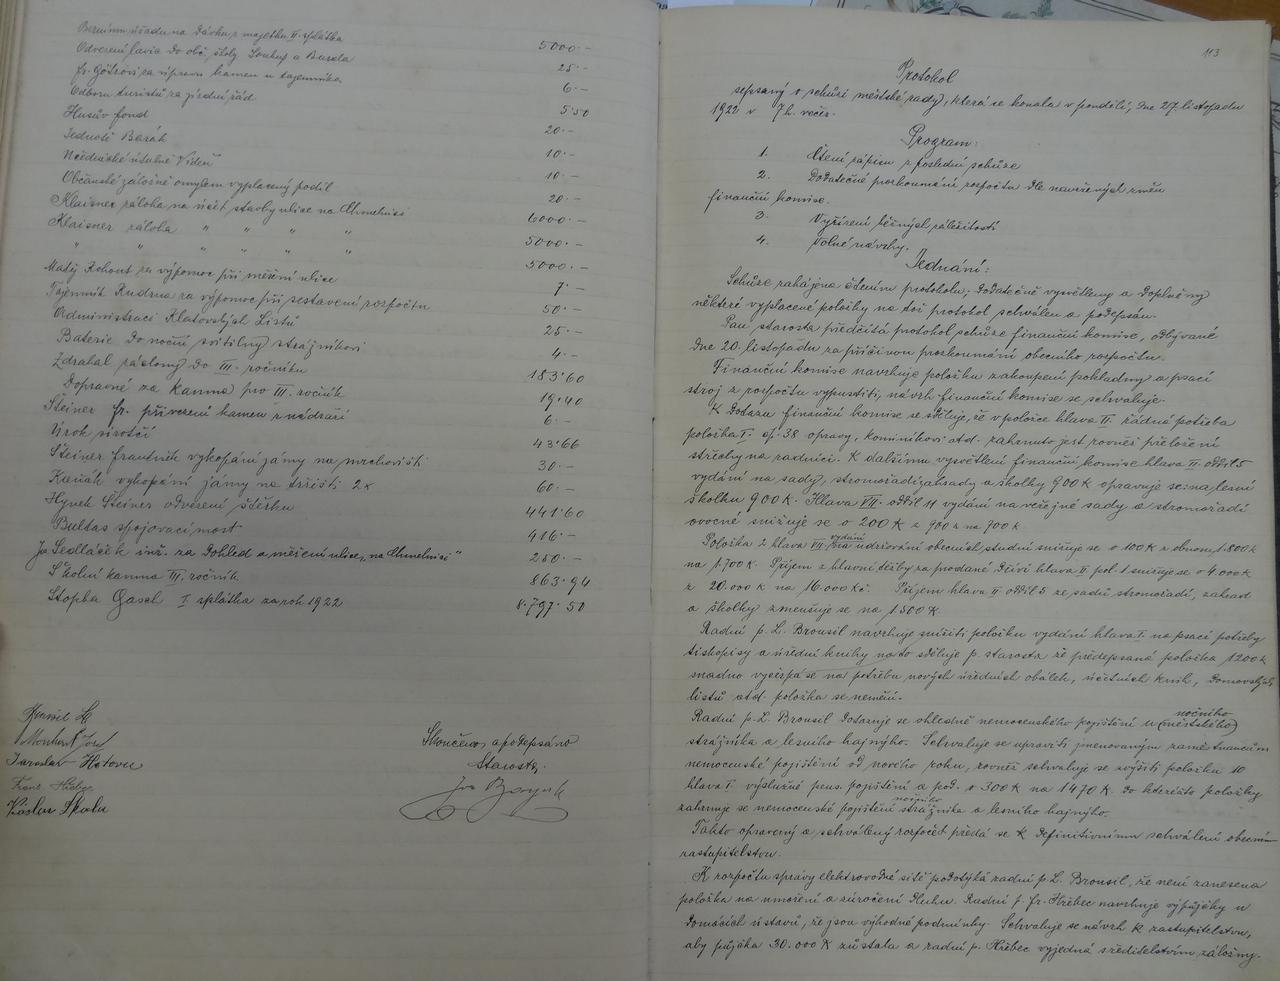 Berním úřadu na dávku z majetku II. splátka 5000·–
Odvezení lavic do obč. školy Souhup a Basala 25·–
Fr. Götzovi za úpravu kamen u tajemníka 6·–
Odboru turistů za jízdní řád 5·50
Husův fond 20·–
Jednotě Barák 10·–
útulně Vídeň 10·–
Občanské záložně omylem vyplacený podíl 20·–
Klaisner záloha na účet stavby ulice na Chmelnici 6000·–
Klaisner záloha " " " " 5000·–
" " " " " " 5000·–
Matěj Kohout za výpomoc při měření ulice 7·–
Tajemník Kudrna za výpomoc při sestavení rozpočtu 50·–
Administraci Klatovských Listů 25·–
Baterie do noční svítilny strážníkovi 4·–
Zdrahal záclony do III. ročníku 183·60
Dopravné za kamna pro III. ročník 19·40
Šteiner fr. přivezení kamen z nádraží 6·–
Úrok sirotčí 43·66
Šteiner frautník vykopání jámy na mrchovišti 30·–
Kaňák vykopání jámy na tržišti 2x 60·–
Hynek Šteiner odvezení štěrku 441·60
Bultas spojovací most 416·–
Jos Sedláček inž. za dohled a měření ulice „na Chmelnici" 250·–
Školní kamna III. ročník 863·94
Stopka Gasel I splátka za rok 1922 8·797·50
Brousil L.
Jaroslav
Václav Skala
Skončeno a podepsáno
Starosta:
113
Protokol
sepsaný o schůzi městské rady, která se konala v pondělí, dne 27. listopadu
1922 v 7 h. večer.
Program:
1. Čtení zápisu z poslední schůze
2. Dodatečné prozkoumání rozpočtu dle navržených změn
finanční komise.
3. Vyřízení běžných záležitostí
4. Volné návrhy.
Jednání:
Schůze zahájena čtením protokolu; dodatečně vysvětleny a doplněny
některé vyplacené položky načež protokol schválen a podepsán.
Pan starosta předčítá protokol schůze finanční komise, odbývané
dne 20. listopadu za příčinou prozkoumání obecního rozpočtu.
Finanční komise navrhuje položku zakoupení pokladny a psací
stroj z rozpočtu vypustiti, návrh finanční komise se schvaluje.
K dotazu finanční komise se sděluje, že v položce hlava II. řádná potřeba
položka I. čj. 38 opravy, kominíkovi atd. zahrnuto jest rovněž přeložení
střechy na radnici. K dalšímu vysvětlení finanční komise hlava II. oddíl 5
vydání na sady, stromořadí, zahrady a školky 900 K opravuje se: na lesní
školku 900 K. Hlava VII. oddíl 11 vydání na veřejné sady a stromořadí
ovocné snižuje se o 200 K z 900 K na 700 K.
Položka 2 hlava VII. vydání udržování obecních studní snižuje se o 100 K z obnosu 1.800 K
na 1.700 K. Příjem z hlavní těžby za prodané dříví hlava II. pol. 1 snižuje se o 4.000 K
z 20.000 K na 16.000 Kč. Příjem hlava II oddíl 5 ze sadů stromořadí, zahrad
a školky zmenšuje se na 1500 K.
Radní p. L. Brousil navrhuje snížiti položku vydání hlava I. na psací potřeby
tiskopisy a úřední knihy na to sděluje p. starosta že předepsaná položka 1200 K
snadno vyčerpá se na potřebu nových úředních obálek, účetních knih, domovských
listů atd. položka se nemění.
Radní p. L. Brousil dotazuje se ohledně nemocenského pojištění u nočního (městského)
strážníka a lesního hajného. Schvaluje se upraviti jmenovaným zaměstnancům
nemocenské pojištění od nového roku, rovněž schvaluje se zvýšiti položku 10
hlava I. výslužné pens. pojištění a pod. o 300 K na 1470 K. do kterézto položky
zahrnuje se nemocenské pojištění nočního strážníka a lesního hajného.
Takto opravený a schválený rozpočet předá se k definitivnímu schválení obecním
zastupitelstvu.
K rozpočtu správy elektrovodné sítě podotýká radní p. L. Brousil, že není zanesena
položka na umoření a zúročení dluhu. Radní p. Fr. Hřebec navrhuje výpůjčky u
domácích ústavů, že jsou výhodné podmínky. Schvaluje se návrh k zastupitelstvu,
aby půjčka 30.000 K zůstala a radní p. Hřebec vyjedná s ředitelstvím záložny.